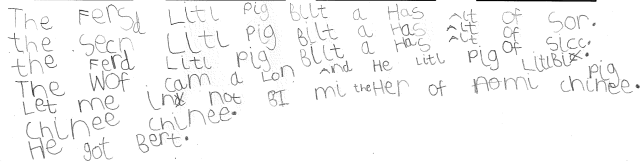 The Fersd Litl pig Bilt a Has Alt of Sor.
the Secn Litl pig Bilt a Has Alt of Slcc.
the Ferd Litl pig Bilt a Has of Bix.
The Wof cam a Lon And He Litl pig Litl pig
Let me in not BI mi the Her of Aomi chinee.
chinee chinee.
He got Bert.